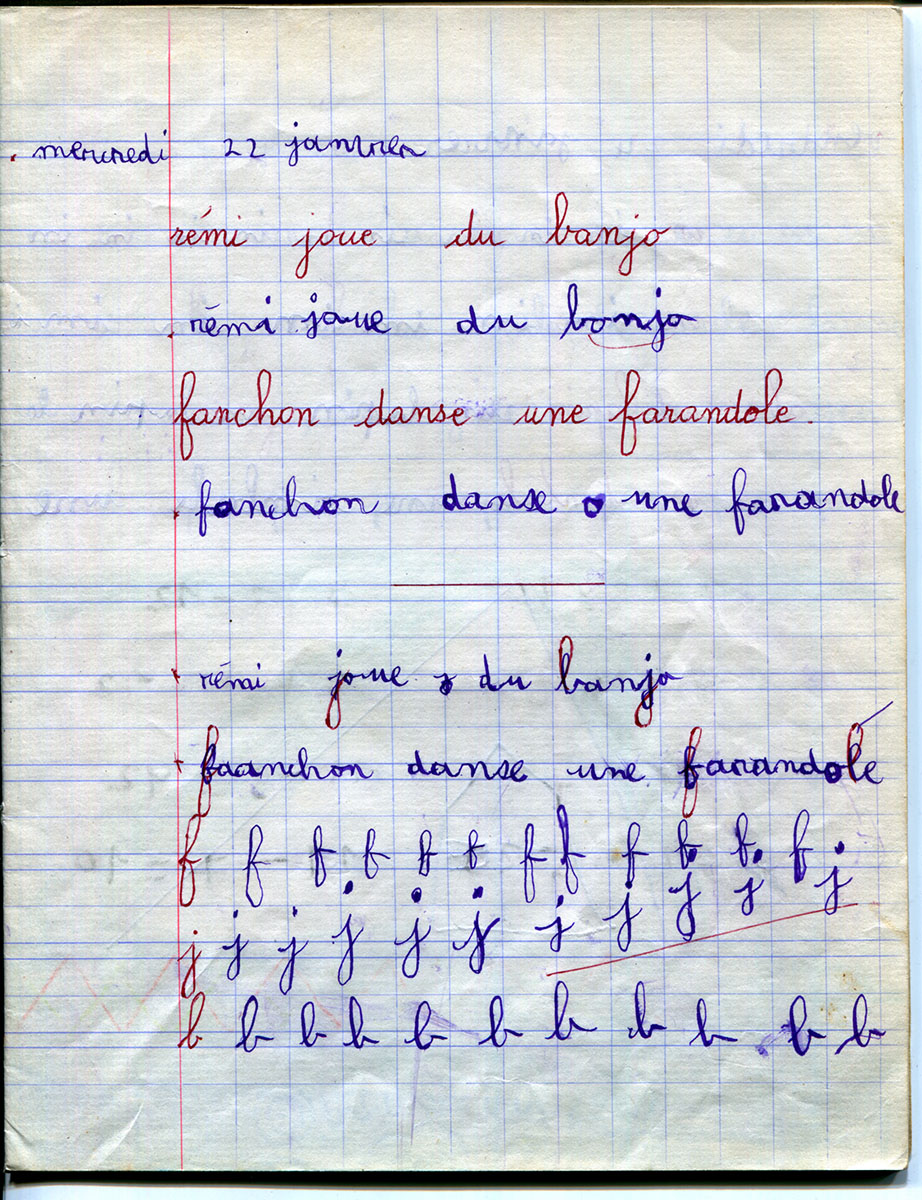 mercredi 22 janvier
rémi joue du banjo
rémi joue du bonjo
fanchon danse une farandole.
fanchon danse une farandole
rémi joue du banjo
faanchon danse une farandole
f f f f f f f f f f f f
j j j j j j j j j j j j
b b b b b b b b b b b